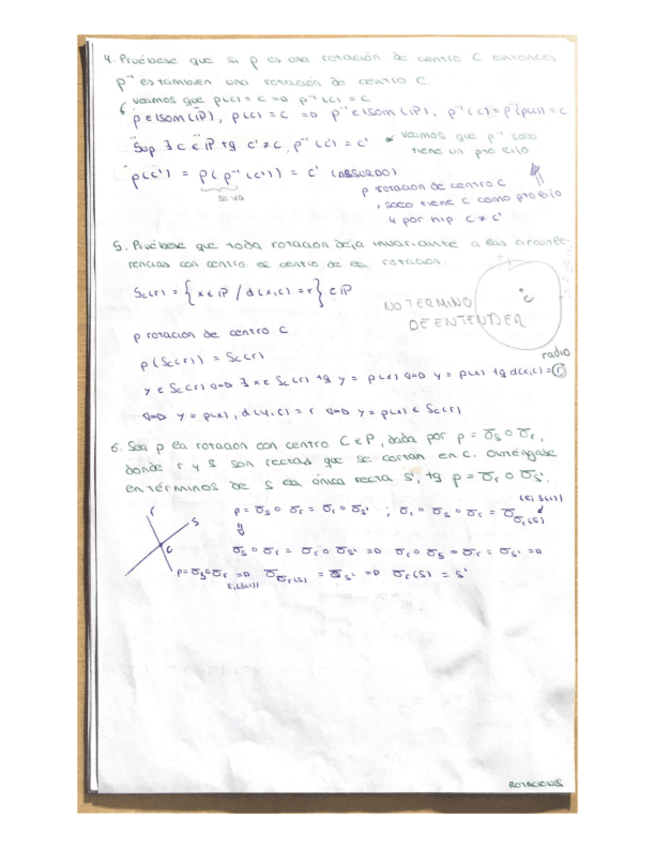 4. Pruébese que si ρ es una rotación de centro C entonces
ρ⁻¹ es también una rotación de centro C.
veamos que ρ(c) = c => ρ⁻¹(c) = c
ρ ∈ Isom(P), ρ(c) = c => ρ⁻¹ ∈ Isom(P), ρ⁻¹(c) = ρ⁻¹(ρ(c)) = c
Sup ∃ c' ∈ P tq c' ≠ c, ρ⁻¹(c') = c'
veamos que ρ⁻¹ solo
tiene un pto fijo
ρ(c') = ρ(ρ⁻¹(c')) = c' (ABSURDO)
se va
ρ rotacion de centro C
, solo tiene C como pto fijo
y por hip C ≠ C'
5. Pruébese que toda rotacion deja invariante a las circunfe-
rencias con centro el centro de la rotacion.
Sc(r) = { x ∈ P / d(x,c) = r } ⊂ P
NO TERMINO
DE ENTENDER
c
ρ rotacion de centro C
radio
ρ(Sc(r)) = Sc(r)
y ∈ Sc(r) <=> ∃ x ∈ Sc(r) tq y = ρ(x) <=> y = ρ(x) tq d(x,c) = r
<=> y = ρ(x), d(y,c) = r <=> y = ρ(x) ∈ Sc(r)
6. Sea ρ la rotacion con centro C ∈ P, dada por ρ = σs ∘ σr,
donde r y s son rectas que se cortan en C. Obténgase
en términos de s la única recta s', tq ρ = σr ∘ σs'.
r
s
c
ρ = σs ∘ σr = σr ∘ σs' ; σr ∘ σs ∘ σr = σσr(s)
σs ∘ σr = σr ∘ σs' => σr ∘ σs ∘ σr = σs' =>
ρ = σs ∘ σr => σσr(s) = σs' => σr(s) = s'
ROTACIONES